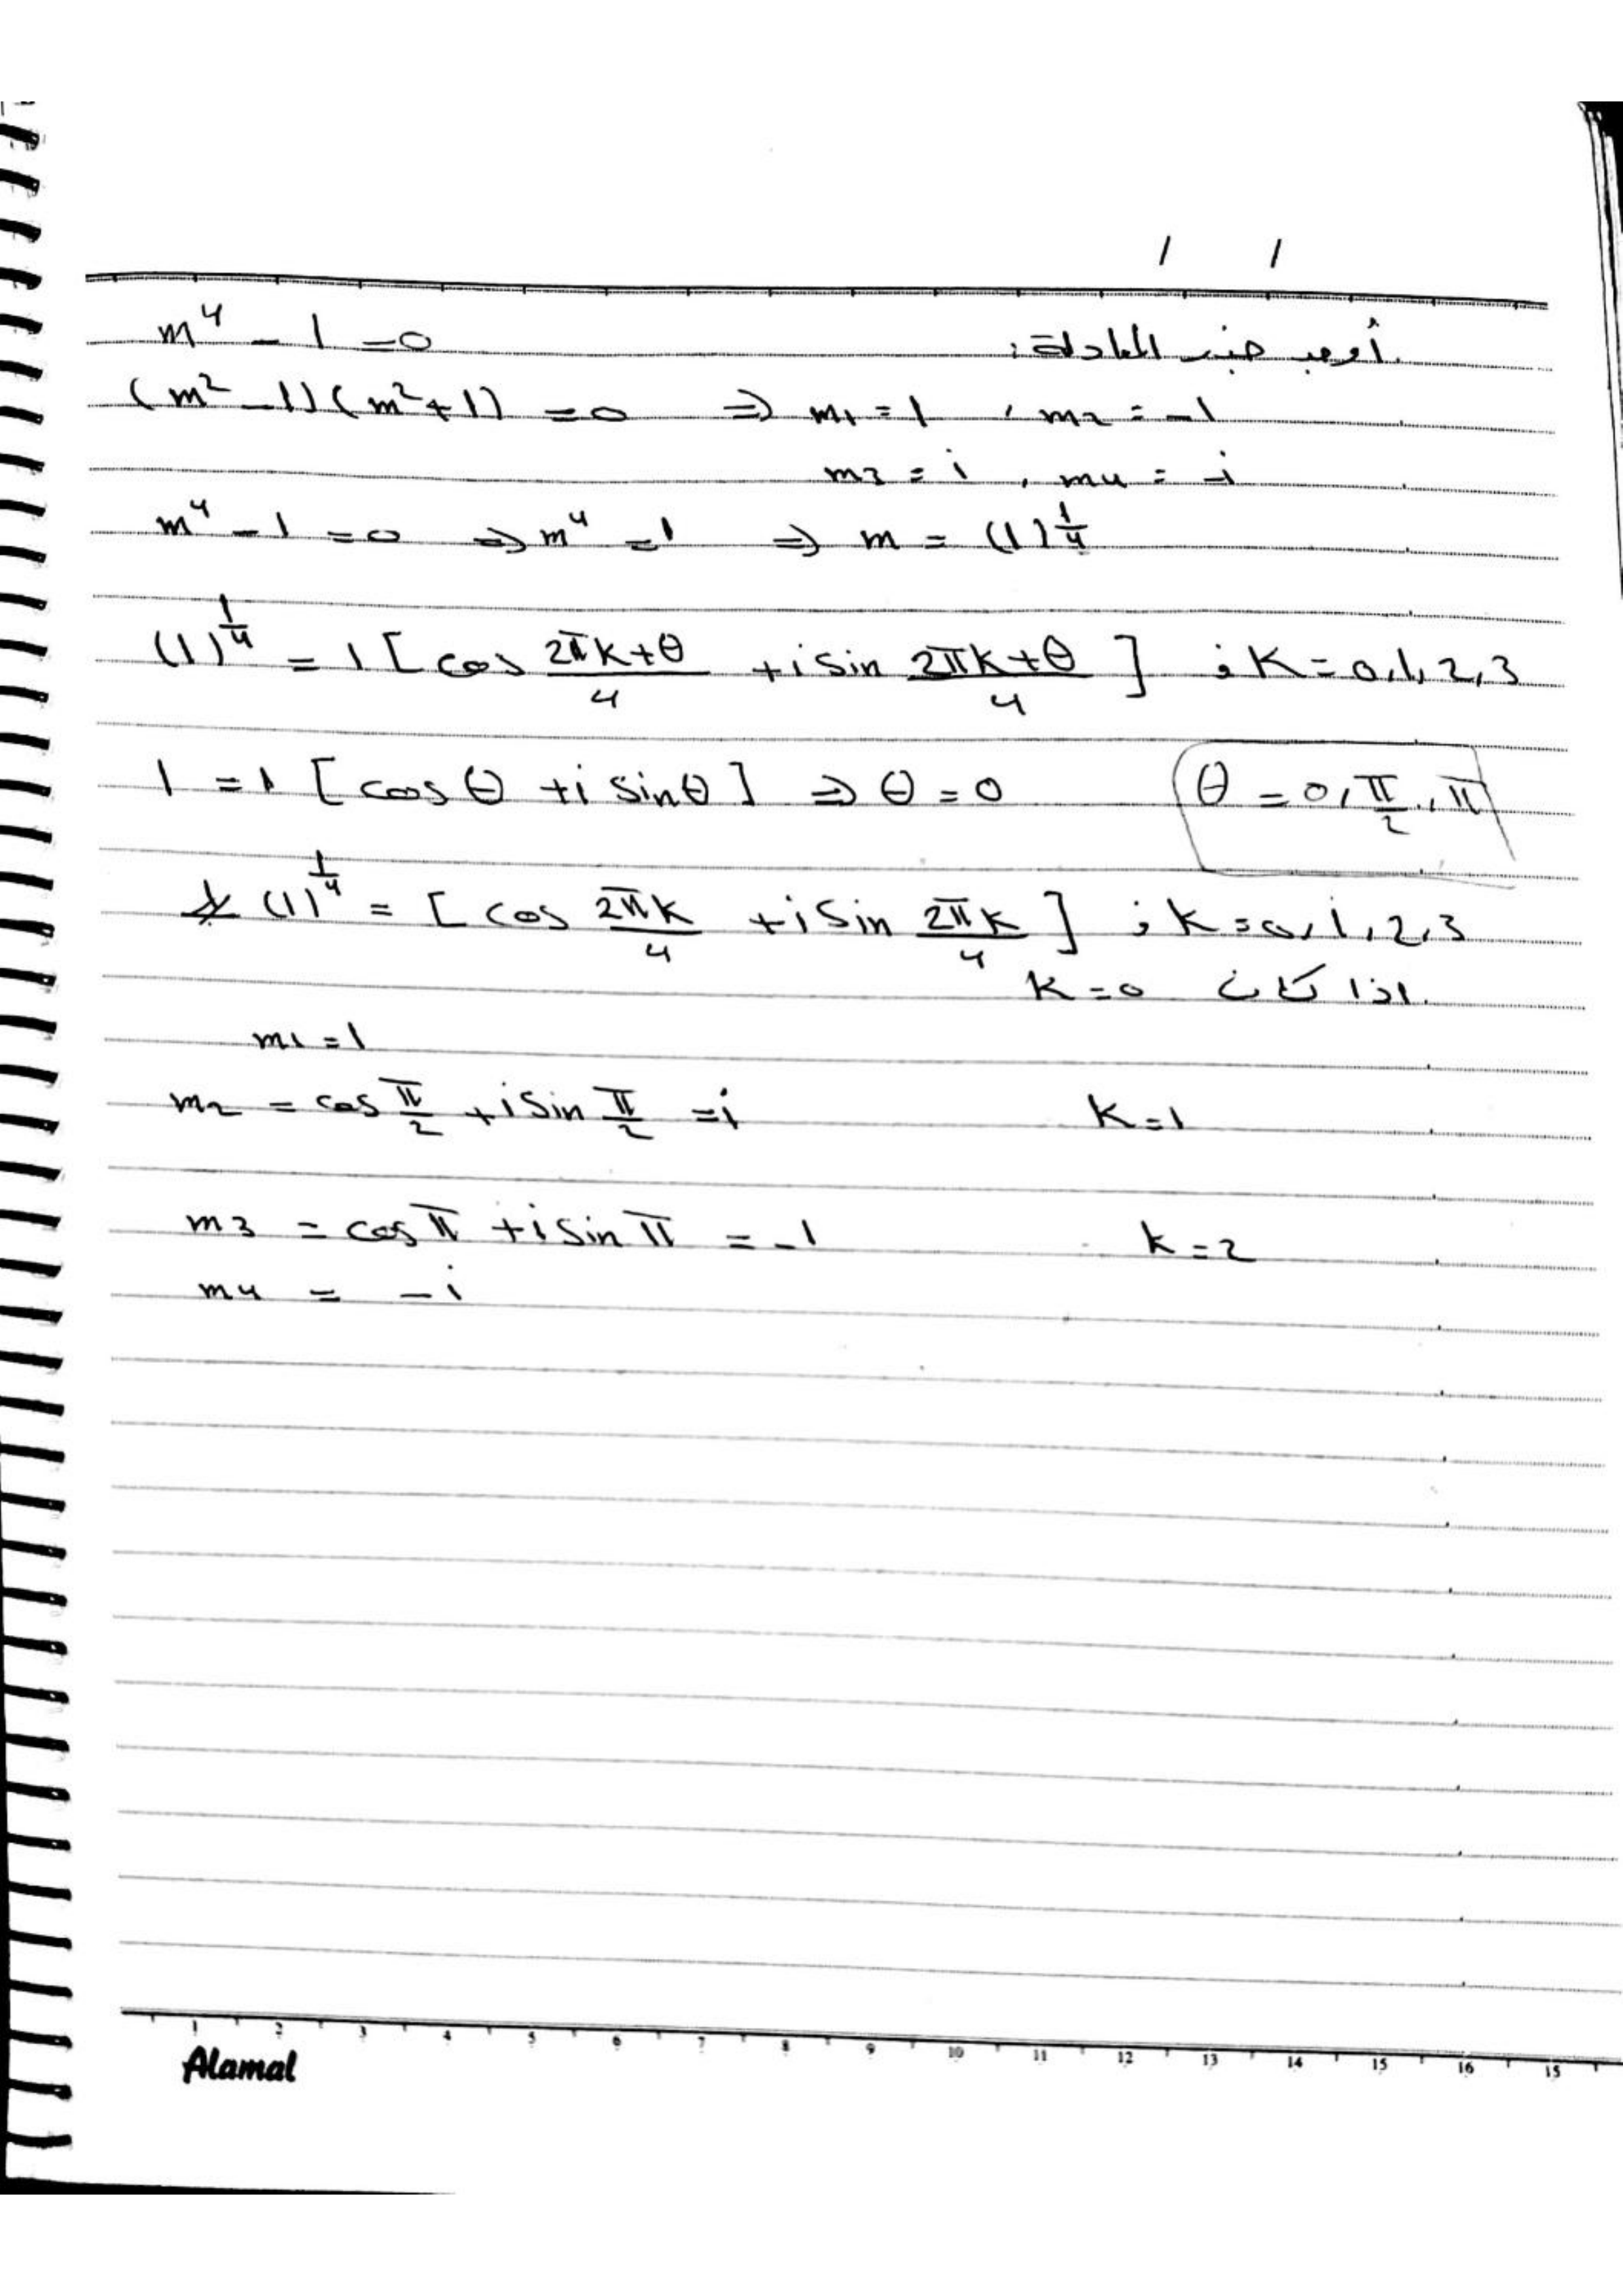 / /
m⁴ - 1 = 0 أوجد جذر المعادلة:
(m² - 1)(m² + 1) = 0 ⇒ m₁ = 1 , m₂ = -1
m₃ = i , m₄ = -i
m⁴ - 1 = 0 ⇒ m⁴ = 1 ⇒ m = (1)^(1/4)
(1)^(1/4) = 1 [cos (2πk+θ)/4 + i sin (2πk+θ)/4] ; K = 0,1,2,3
1 = 1 [cos θ + i sin θ] ⇒ θ = 0 θ = 0, π/2, π
(1)^(1/4) = [cos 2πk/4 + i sin 2πk/4] ; k = 0,1,2,3
اذا كان k = 0
m₁ = 1
m₂ = cos π/2 + i sin π/2 = i k = 1
m₃ = cos π + i sin π = -1 k = 2
m₄ = -i
1 2 3 4 5 6 7 8 9 10 11 12 13 14 15 16 15
Alamal